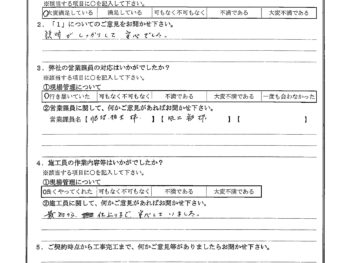 ※該当する項目に○を記入して下さい。
○大変満足している 満足している 可もなく不可もなく 不満である 大変不満である
2．「1」についてのご意見をお聞かせ下さい。
説明がしっかりして安心でした。
3．弊社の営業課員の対応はいかがでしたか？
※該当する項目に○を記入して下さい。
①現場管理について
○行き届いていた 可もなく不可もなく 不満である 大変不満である 一度も会わなかった
②営業課員に関して、何かご意見があればお聞かせ下さい。
営業課員名【 様】【 様】【 】
4．施工員の作業内容等はいかがでしたか？
※該当する項目に○を記入して下さい。
①現場管理について
○良くやってくれた 可もなく不可もなく 不満である 大変不満である
②施工員に関して、何かご意見があればお聞かせ下さい。
安心していました。
5．ご契約時点から工事完工まで、何かご意見等がありましたらお聞かせ下さい。